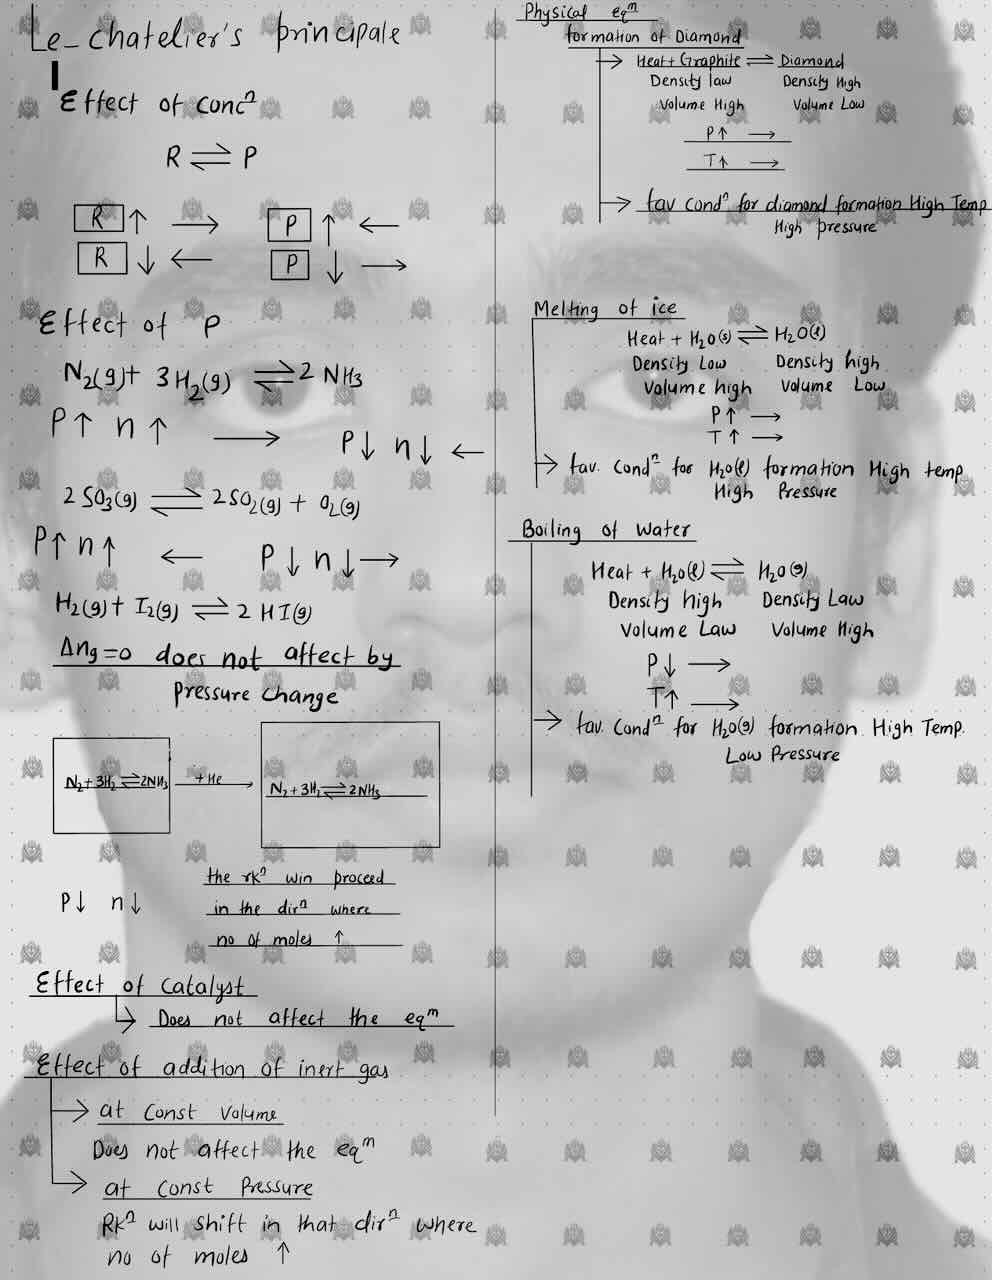 Le-chatelier's principale
Effect of concⁿ
R ⇌ P
R ↑ → P ↑ ←
R ↓ ← P ↓ →
Effect of P
N₂(g)+ 3H₂(g) ⇌ 2 NH₃
P↑ n↑ → P↓ n↓ ←
2 SO₃(g) ⇌ 2SO₂(g) + O₂(g)
P↑ n↑ ← P↓ n↓ →
H₂(g)+ I₂(g) ⇌ 2 HI(g)
Δng=0 does not affect by
pressure change
N₂+3H₂⇌2NH₃ +He → N₂+3H₂⇌2NH₃
the rkⁿ win proceed
P↓ n↓ in the dirⁿ where
no of moles ↑
Effect of Catalyst
Does not affect the eqᵐ
Effect of addition of inert gas
→ at Const Volume
Does not affect the eqᵐ
→ at Const Pressure
Rkⁿ will shift in that dirⁿ where
no of moles ↑
Physical eqᵐ
formation of Diamond
→ Heat+Graphite ⇌ Diamond
Density law Density High
Volume High Volume Low
P↑ →
T↑ →
→ fav condⁿ for diamond formation High Temp
High pressure
Melting of ice
Heat + H₂O(s) ⇌ H₂O(l)
Density Low Density high
Volume high Volume Low
P↑ →
T↑ →
→ fav. Condⁿ for H₂O(l) formation High temp
High Pressure
Boiling of Water
Heat + H₂O(l) ⇌ H₂O(g)
Density high Density Law
Volume Law Volume High
P↓ →
T↑ →
→ fav. Condⁿ for H₂O(g) formation High Temp.
Low Pressure